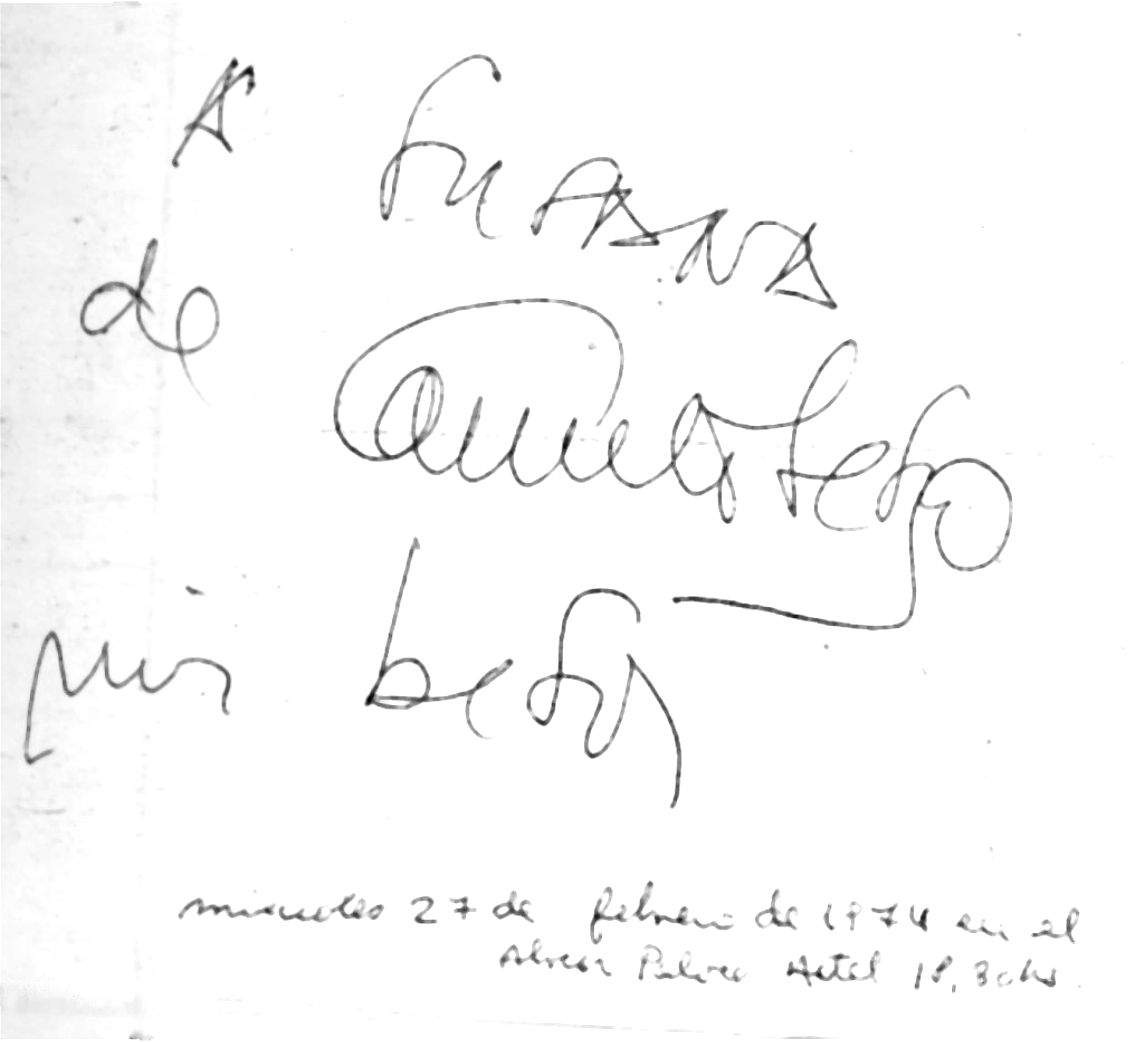 A Susana
de Camilo Sesto
mis besos
miercoles 27 de febrero de 1974 en el
Alvear Palace Hotel 18,30hs.